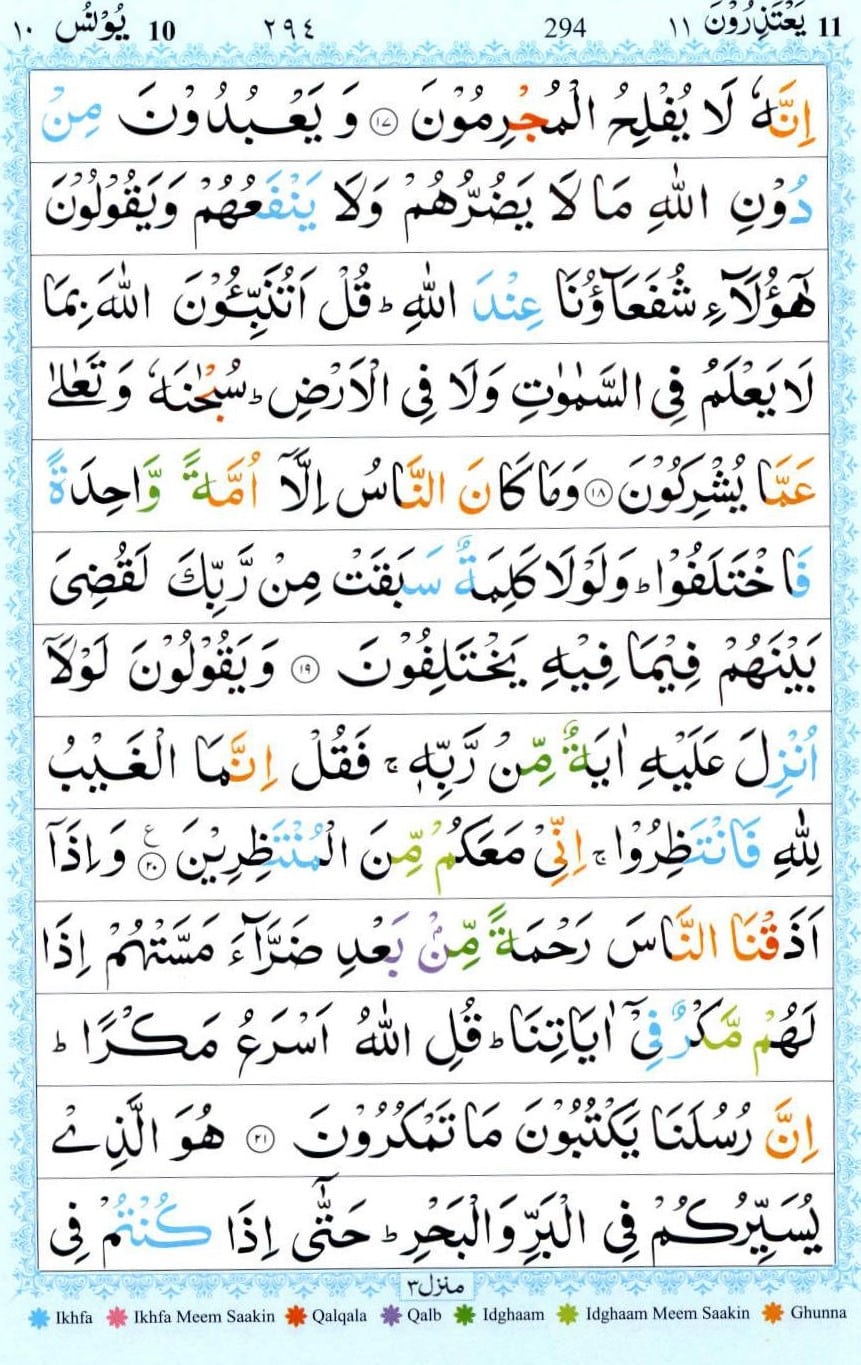 11 يَعْتَذِرُوْنَ ١١ 294 ٢٩٤ 10 يُوْنُس ١٠
اِنَّهٗ لَا يُفْلِحُ الْمُجْرِمُوْنَ ۝١٧ وَ يَعْبُدُوْنَ مِنْ
دُوْنِ اللّٰهِ مَا لَا يَضُرُّهُمْ وَلَا يَنْفَعُهُمْ وَيَقُوْلُوْنَ
هٰٓؤُلَآءِ شُفَعَآؤُنَا عِنْدَ اللّٰهِ ؕ قُلْ اَتُنَبِّـُٔوْنَ اللّٰهَ بِمَا
لَا يَعْلَمُ فِى السَّمٰوٰتِ وَلَا فِى الْاَرْضِ ؕ سُبْحٰنَهٗ وَ تَعٰلٰى
عَمَّا يُشْرِكُوْنَ ۝١٨ وَمَا كَانَ النَّاسُ اِلَّاۤ اُمَّةً وَّاحِدَةً
فَاخْتَلَفُوْا ؕ وَلَوْلَا كَلِمَةٌ سَبَقَتْ مِنْ رَّبِّكَ لَقُضِىَ
بَيْنَهُمْ فِيْمَا فِيْهِ يَخْتَلِفُوْنَ ۝١٩ وَيَقُوْلُوْنَ لَوْلَاۤ
اُنْزِلَ عَلَيْهِ اٰيَةٌ مِّنْ رَّبِّهٖ ۚ فَقُلْ اِنَّمَا الْغَيْبُ
لِلّٰهِ فَانْتَظِرُوْا ۚ اِنِّىْ مَعَكُمْ مِّنَ الْمُنْتَظِرِيْنَ ۝٢٠ ع وَاِذَاۤ
اَذَقْنَا النَّاسَ رَحْمَةً مِّنْۢ بَعْدِ ضَرَّآءَ مَسَّتْهُمْ اِذَا
لَهُمْ مَّكْرٌ فِىْۤ اٰيَاتِنَا ؕ قُلِ اللّٰهُ اَسْرَعُ مَكْرًا ؕ
اِنَّ رُسُلَنَا يَكْتُبُوْنَ مَا تَمْكُرُوْنَ ۝٢١ هُوَ الَّذِىْ
يُسَيِّرُكُمْ فِى الْبَرِّ وَالْبَحْرِ ؕ حَتّٰٓى اِذَا كُنْتُمْ فِى
منزل ٣
Ikhfa Ikhfa Meem Saakin Qalqala Qalb Idghaam Idghaam Meem Saakin Ghunna